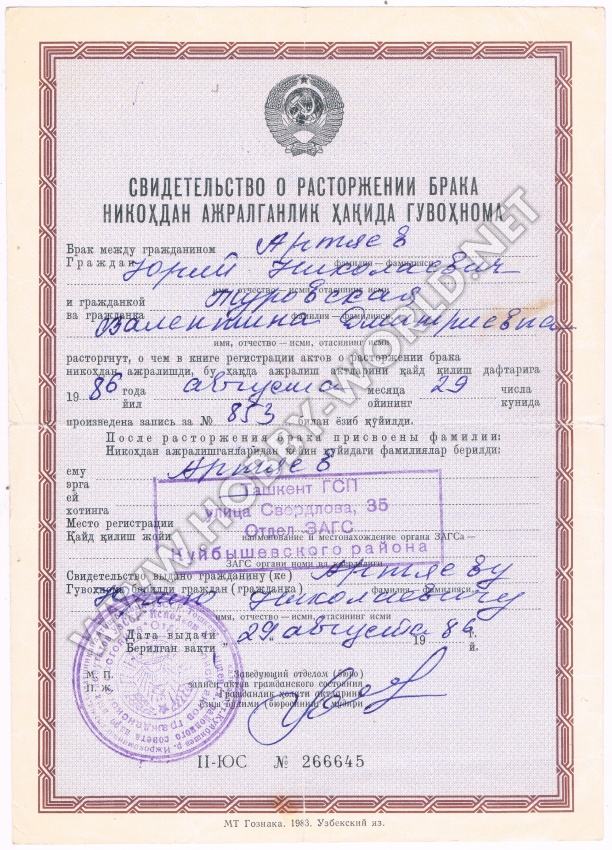 СВИДЕТЕЛЬСТВО О РАСТОРЖЕНИИ БРАКА
НИКОҲДАН АЖРАЛГАНЛИК ҲАҚИДА ГУВОҲНОМА
Брак между гражданином Артяев
Граждан фамилия — фамилияси
Юрий Николаевич
имя, отчество — исми, отасининг исми
и гражданкой Туровская
ва гражданка фамилия — фамилияси
Валентина Дмитриевна
имя, отчество — исми, отасининг исми
расторгнут, о чем в книге регистрации актов о расторжении брака
никоҳдан ажралишди, бу ҳақда ажралиш актларини қайд қилиш дафтарига
19 86 года августа месяца 29 числа
йил ойининг кунида
произведена запись за № 853 билан ёзиб қўйилди.
После расторжения брака присвоены фамилии:
Никоҳдан ажралишганларидан кейин қуйидаги фамилиялар берилди:
ему Артяев
эрга
ей
хотинга
Ташкент ГСП
улица Свердлова, 35
Отдел ЗАГС
Куйбышевского района
Место регистрации
Қайд қилиш жойи наименование и местонахождение органа ЗАГСа —
ЗАГС органи номи ва
Свидетельство выдано гражданину (ке) Артяеву
Гувоҳнома берилди граждан (гражданка) фамилия — фамилияси
Юрию Николаевичу
Дата выдачи 29 августа 19 86 г.
Берилган вақти й.
М. П. Заведующий отделом (бюро)
П. Ж. записи актов гражданского состояния
Гражданлик ҳолати актларини
ёзиш бўлими (бюроси)нинг мудири
II-ЮС № 266645
МТ Гознака. 1983. Узбекский яз.
WWW.HOBBY-WORLD.NET